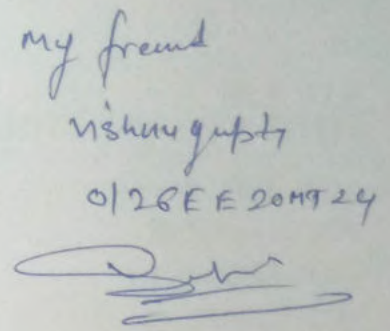 My freund
vishnu gupta
0126EE20MT24